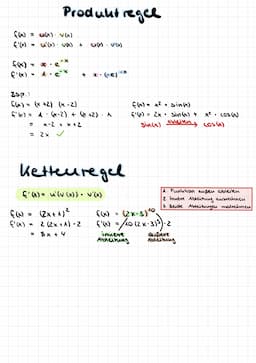 Produktregel
f(x) = u(x) · v(x)
f'(x) = u'(x) · v(x) + u(x) · v'(x)
f(x) = x · e^-x
f'(x) = 1 · e^-x + x ·
Bsp.:
f(x) = (x+2) · (x-2)
f'(x) = 1 · (x-2) + (x+2) · 1
= x-2 + x+2
= 2x ✓
f(x) = x² · sin(x)
f'(x) = 2x · sin(x) + x² · cos(x)
sin(x) ableiten → cos(x)
Kettenregel
f'(x) = u'(v(x)) · v'(x)
1. Funktion außen ableiten
2. Innere Ableitung ausrechnen
3. Beide Ableitungen multiplizieren
f(x) = (2x+1)²
f'(x) = 2(2x+1) · 2
= 8x + 4
f(x) = (2x-3)
f'(x) = (2x-3) · 2
innere Ableitung
äußere Ableitung